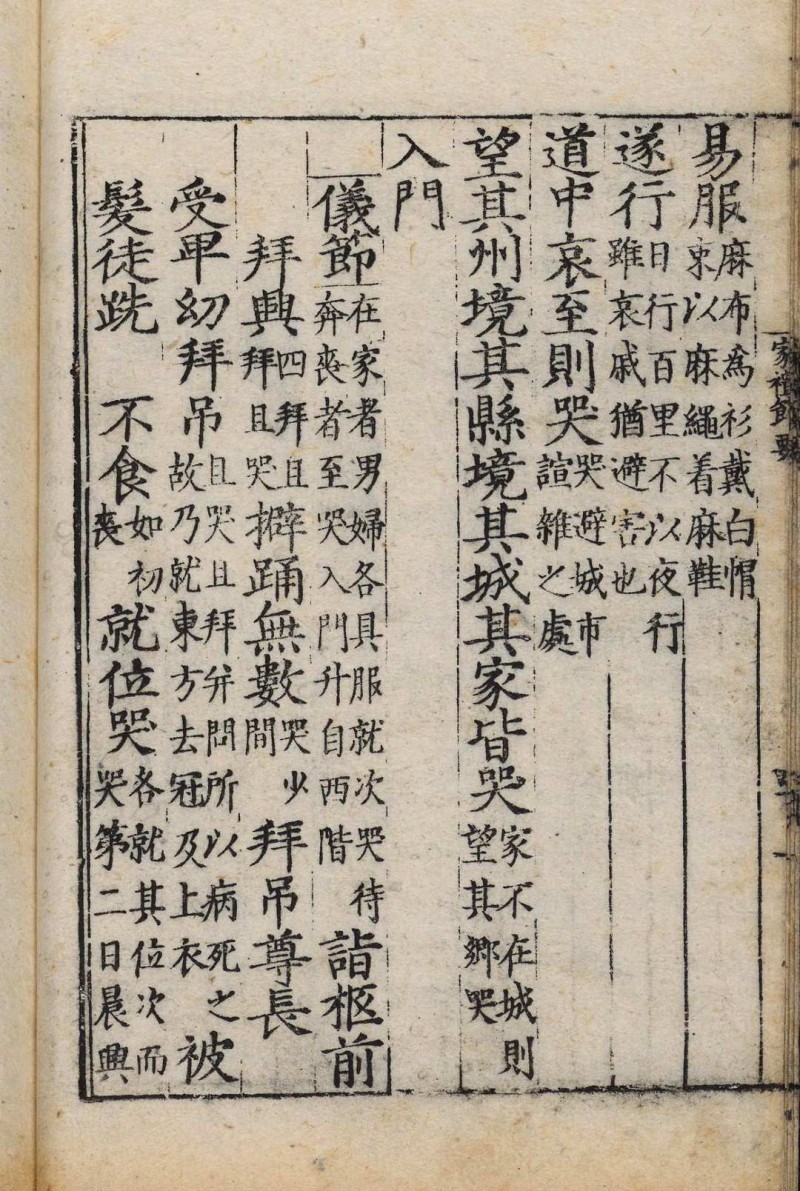 易服麻布爲衫戴白帽束以麻繩着麻鞋
遂行日行百里不以夜行雖哀戚猶避害也
道中哀至則哭哭避城市諠雜之處
望其州境其縣境其城其家皆哭家不在城則望其鄉哭
入門
儀節在家者男婦各具服就次哭待奔喪者至哭入門升自西階詣柩前
拜興四拜且拜且哭擗踊無數哭少間拜吊尊長
受卑幼拜吊且哭且拜并問所以病死之故乃就東方去冠及上衣被
髮徒跣 不食如初喪就位哭各就其位次而哭第二日晨興